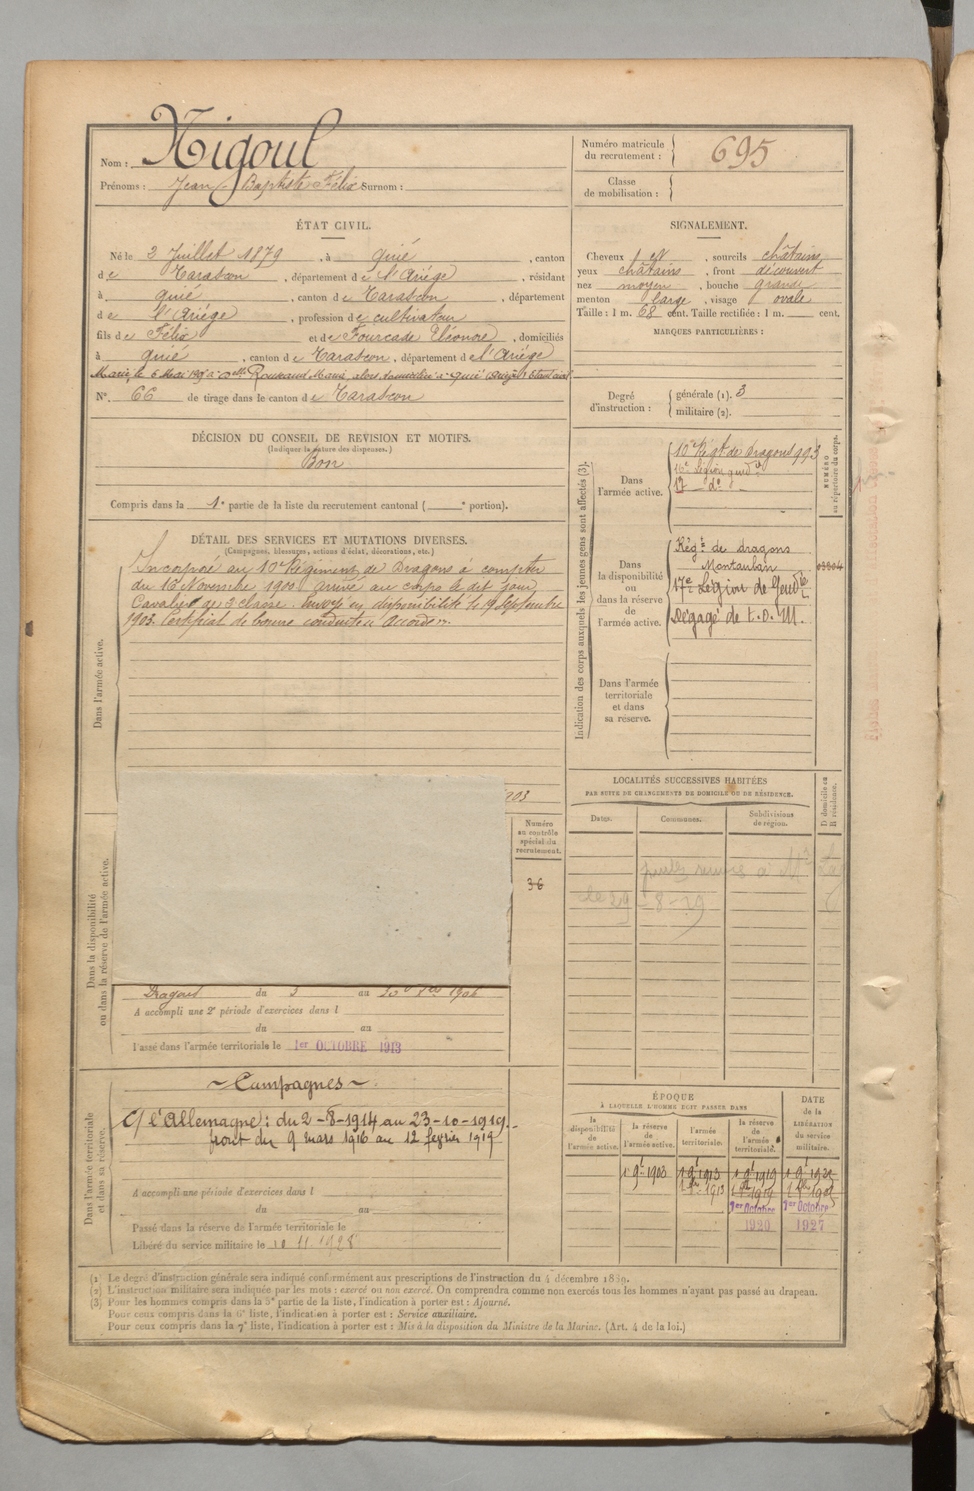 Nom : Nigoul
Prénoms : Jean Baptiste Félix Surnom :
Numéro matricule du recrutement : 695
Classe de mobilisation :
ÉTAT CIVIL.
Né le 2 Juillet 1879, à Quié, canton
de Tarascon, département de l'Ariége, résidant
à Quié, canton de Tarascon, département
de l'Ariége, profession de cultivateur
fils de Félix et de Fourcade Eléonore, domiciliés
à Quié, canton de Tarascon, département de l'Ariége
Marié le 6 Mai à Melle Rousaud Marie, alors domiciliée à Quié
N° 66 de tirage dans le canton de Tarascon
SIGNALEMENT.
Cheveux et, sourcils châtains
yeux châtains, front découvert
nez moyen, bouche grande
menton large, visage ovale
Taille : 1 m. 68 cent. Taille rectifiée : 1 m. cent.
MARQUES PARTICULIÈRES :
Degré d'instruction : générale (1). 3
militaire (2).
DÉCISION DU CONSEIL DE REVISION ET MOTIFS.
(Indiquer la nature des dispenses.)
Bon
Compris dans la 1e partie de la liste du recrutement cantonal ( e portion).
DÉTAIL DES SERVICES ET MUTATIONS DIVERSES.
(Campagnes, blessures, actions d'éclat, décorations, etc.)
Dans l'armée active.
Incorporé au 10e Régiment de Dragons à compter
du 16 Novembre 1900 arrivé au corps le dit jour
Cavalier de 2e classe. Envoyé en disponibilité le 19 Septembre
1903. Certificat de bonne conduite « Accordé ».
Indication des corps auxquels les jeunes gens sont affectés (3).
NUMÉRO au répertoire du corps.
Dans l'armée active.
10e Régt de Dragons 993
16e Légion gend
17 do
Dans la disponibilité ou dans la réserve de l'armée active.
Régt de dragons
Montauban
17e Légion de Gendie
Dégagé de t.o.M.
Dans l'armée territoriale et dans sa réserve.
LOCALITÉS SUCCESSIVES HABITÉES
PAR SUITE DE CHANGEMENTS DE DOMICILE OU DE RÉSIDENCE.
Dates.
Communes.
Subdivisions de région.
D domicile ou R résidence.
le 29 - 8 - 29
Dans la disponibilité ou dans la réserve de l'armée active.
Numéro au contrôle spécial du recrutement.
36
Dragons du 3 au 1906
A accompli une 2e période d'exercices dans l
du au
Passé dans l'armée territoriale le 1er OCTOBRE 1913
Dans l'armée territoriale et dans sa réserve.
~ Campagnes ~
C/ l'Allemagne : du 2-8-1914 au 23-10-1919.
front du 9 mars 1916 au 12 février 1919
A accompli une période d'exercices dans l
du au
Passé dans la réserve de l'armée territoriale le
Libéré du service militaire le 10.11.1928
ÉPOQUE
À LAQUELLE L'HOMME DOIT PASSER DANS
la disponibilité de l'armée active.
la réserve de l'armée active.
l'armée territoriale.
la réserve de l'armée territoriale.
DATE de la LIBÉRATION du service militaire.
1903 1913 1919
1913 1919
1er Octobre 1er Octobre
1920 1927
(1) Le degré d'instruction générale sera indiqué conformément aux prescriptions de l'instruction du 4 décembre 1889.
(2) L'instruction militaire sera indiquée par les mots : exercé ou non exercé. On comprendra comme non exercés tous les hommes n'ayant pas passé au drapeau.
(3) Pour les hommes compris dans la 5e partie de la liste, l'indication à porter est : Ajourné.
Pour ceux compris dans la 6e liste, l'indication à porter est : Service auxiliaire.
Pour ceux compris dans la 7e liste, l'indication à porter est : Mis à la disposition du Ministre de la Marine. (Art. 4 de la loi.)